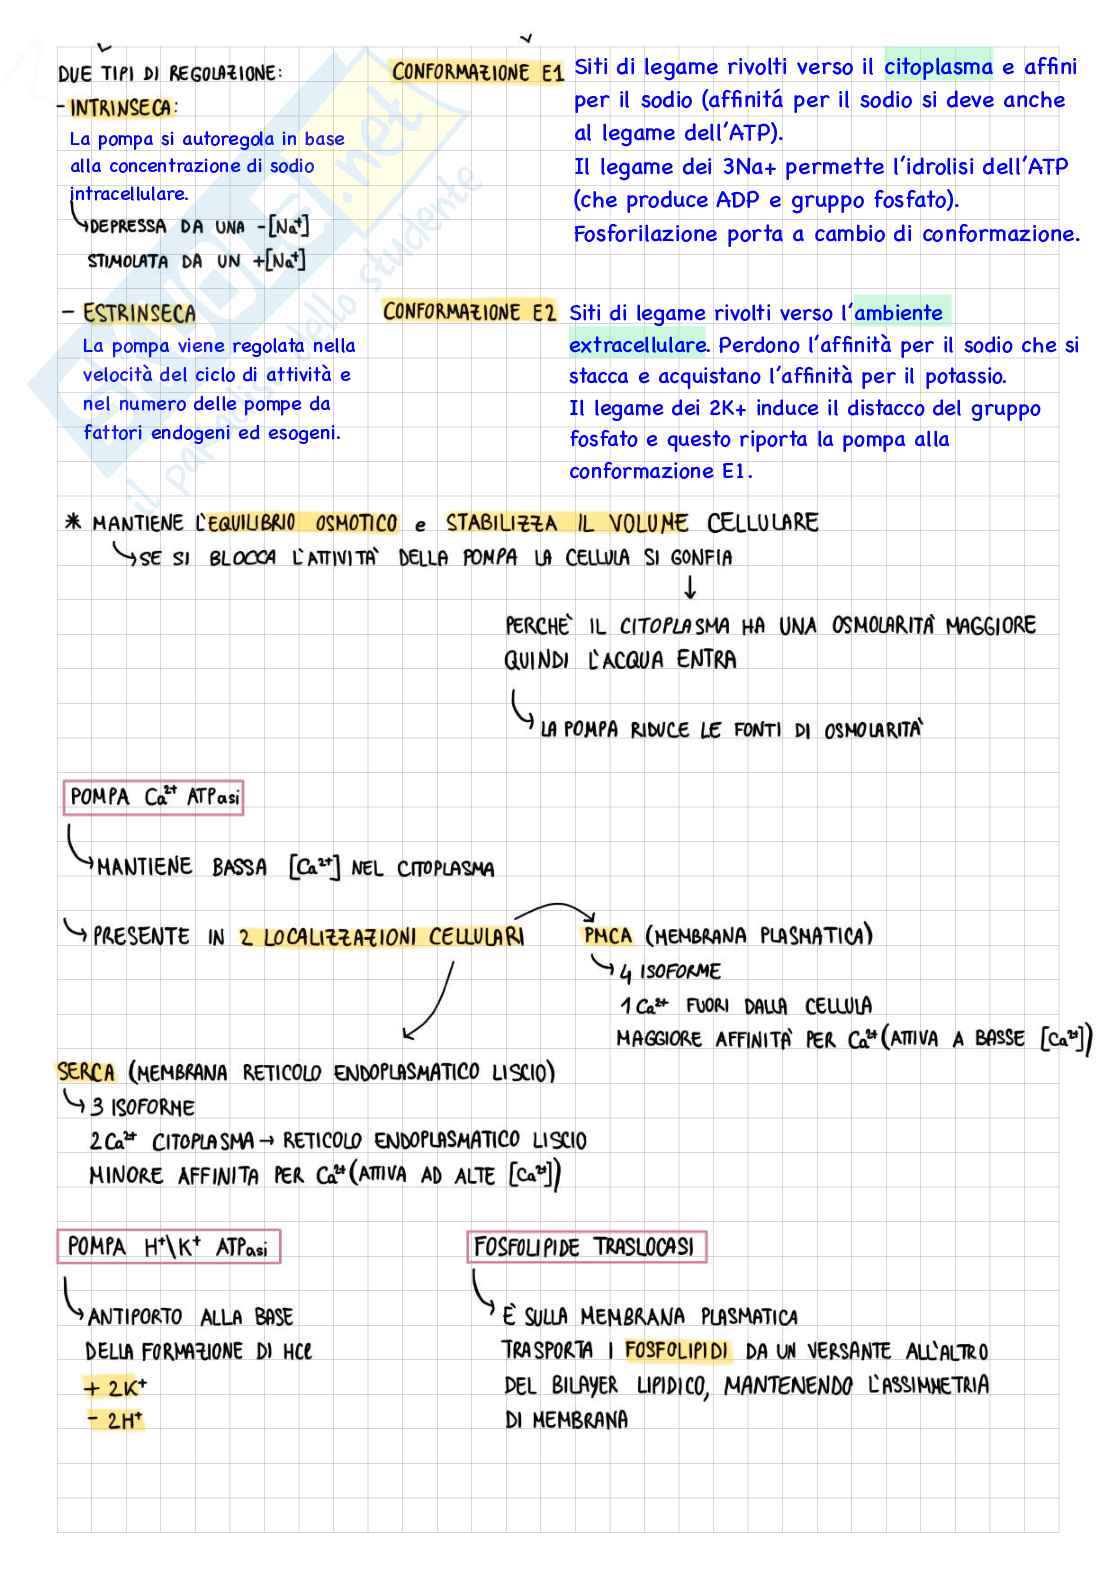 DUE TIPI DI REGOLAZIONE:
- INTRINSECA:
La pompa si autoregola in base
alla concentrazione di sodio
intracellulare.
DEPRESSA DA UNA -[Na+]
STIMOLATA DA UN +[Na+]
CONFORMAZIONE E1
Siti di legame rivolti verso il citoplasma e affini
per il sodio (affinitá per il sodio si deve anche
al legame dell'ATP).
Il legame dei 3Na+ permette l'idrolisi dell'ATP
(che produce ADP e gruppo fosfato).
Fosforilazione porta a cambio di conformazione.
- ESTRINSECA
La pompa viene regolata nella
velocità del ciclo di attività e
nel numero delle pompe da
fattori endogeni ed esogeni.
CONFORMAZIONE E2
Siti di legame rivolti verso l'ambiente
extracellulare. Perdono l'affinità per il sodio che si
stacca e acquistano l'affinità per il potassio.
Il legame dei 2K+ induce il distacco del gruppo
fosfato e questo riporta la pompa alla
conformazione E1.
* MANTIENE L'EQUILIBRIO OSMOTICO e STABILIZZA IL VOLUME CELLULARE
SE SI BLOCCA L'ATTIVITÀ DELLA POMPA LA CELLULA SI GONFIA
↓
PERCHÈ IL CITOPLASMA HA UNA OSMOLARITÀ MAGGIORE
QUINDI L'ACQUA ENTRA
LA POMPA RIDUCE LE FONTI DI OSMOLARITÀ
POMPA Ca²⁺ ATPasi
MANTIENE BASSA [Ca²⁺] NEL CITOPLASMA
PRESENTE IN 2 LOCALIZZAZIONI CELLULARI
PMCA (MEMBRANA PLASMATICA)
4 ISOFORME
1 Ca²⁺ FUORI DALLA CELLULA
MAGGIORE AFFINITÀ PER Ca²⁺ (ATTIVA A BASSE [Ca²⁺])
SERCA (MEMBRANA RETICOLO ENDOPLASMATICO LISCIO)
3 ISOFORME
2Ca²⁺ CITOPLASMA → RETICOLO ENDOPLASMATICO LISCIO
MINORE AFFINITA PER Ca²⁺ (ATTIVA AD ALTE [Ca²⁺])
POMPA H⁺\K⁺ ATPasi
ANTIPORTO ALLA BASE
DELLA FORMAZIONE DI HCl
+ 2K⁺
- 2H⁺
FOSFOLIPIDE TRASLOCASI
È SULLA MEMBRANA PLASMATICA
TRASPORTA I FOSFOLIPIDI DA UN VERSANTE ALL'ALTRO
DEL BILAYER LIPIDICO, MANTENENDO L'ASSIMMETRIA
DI MEMBRANA